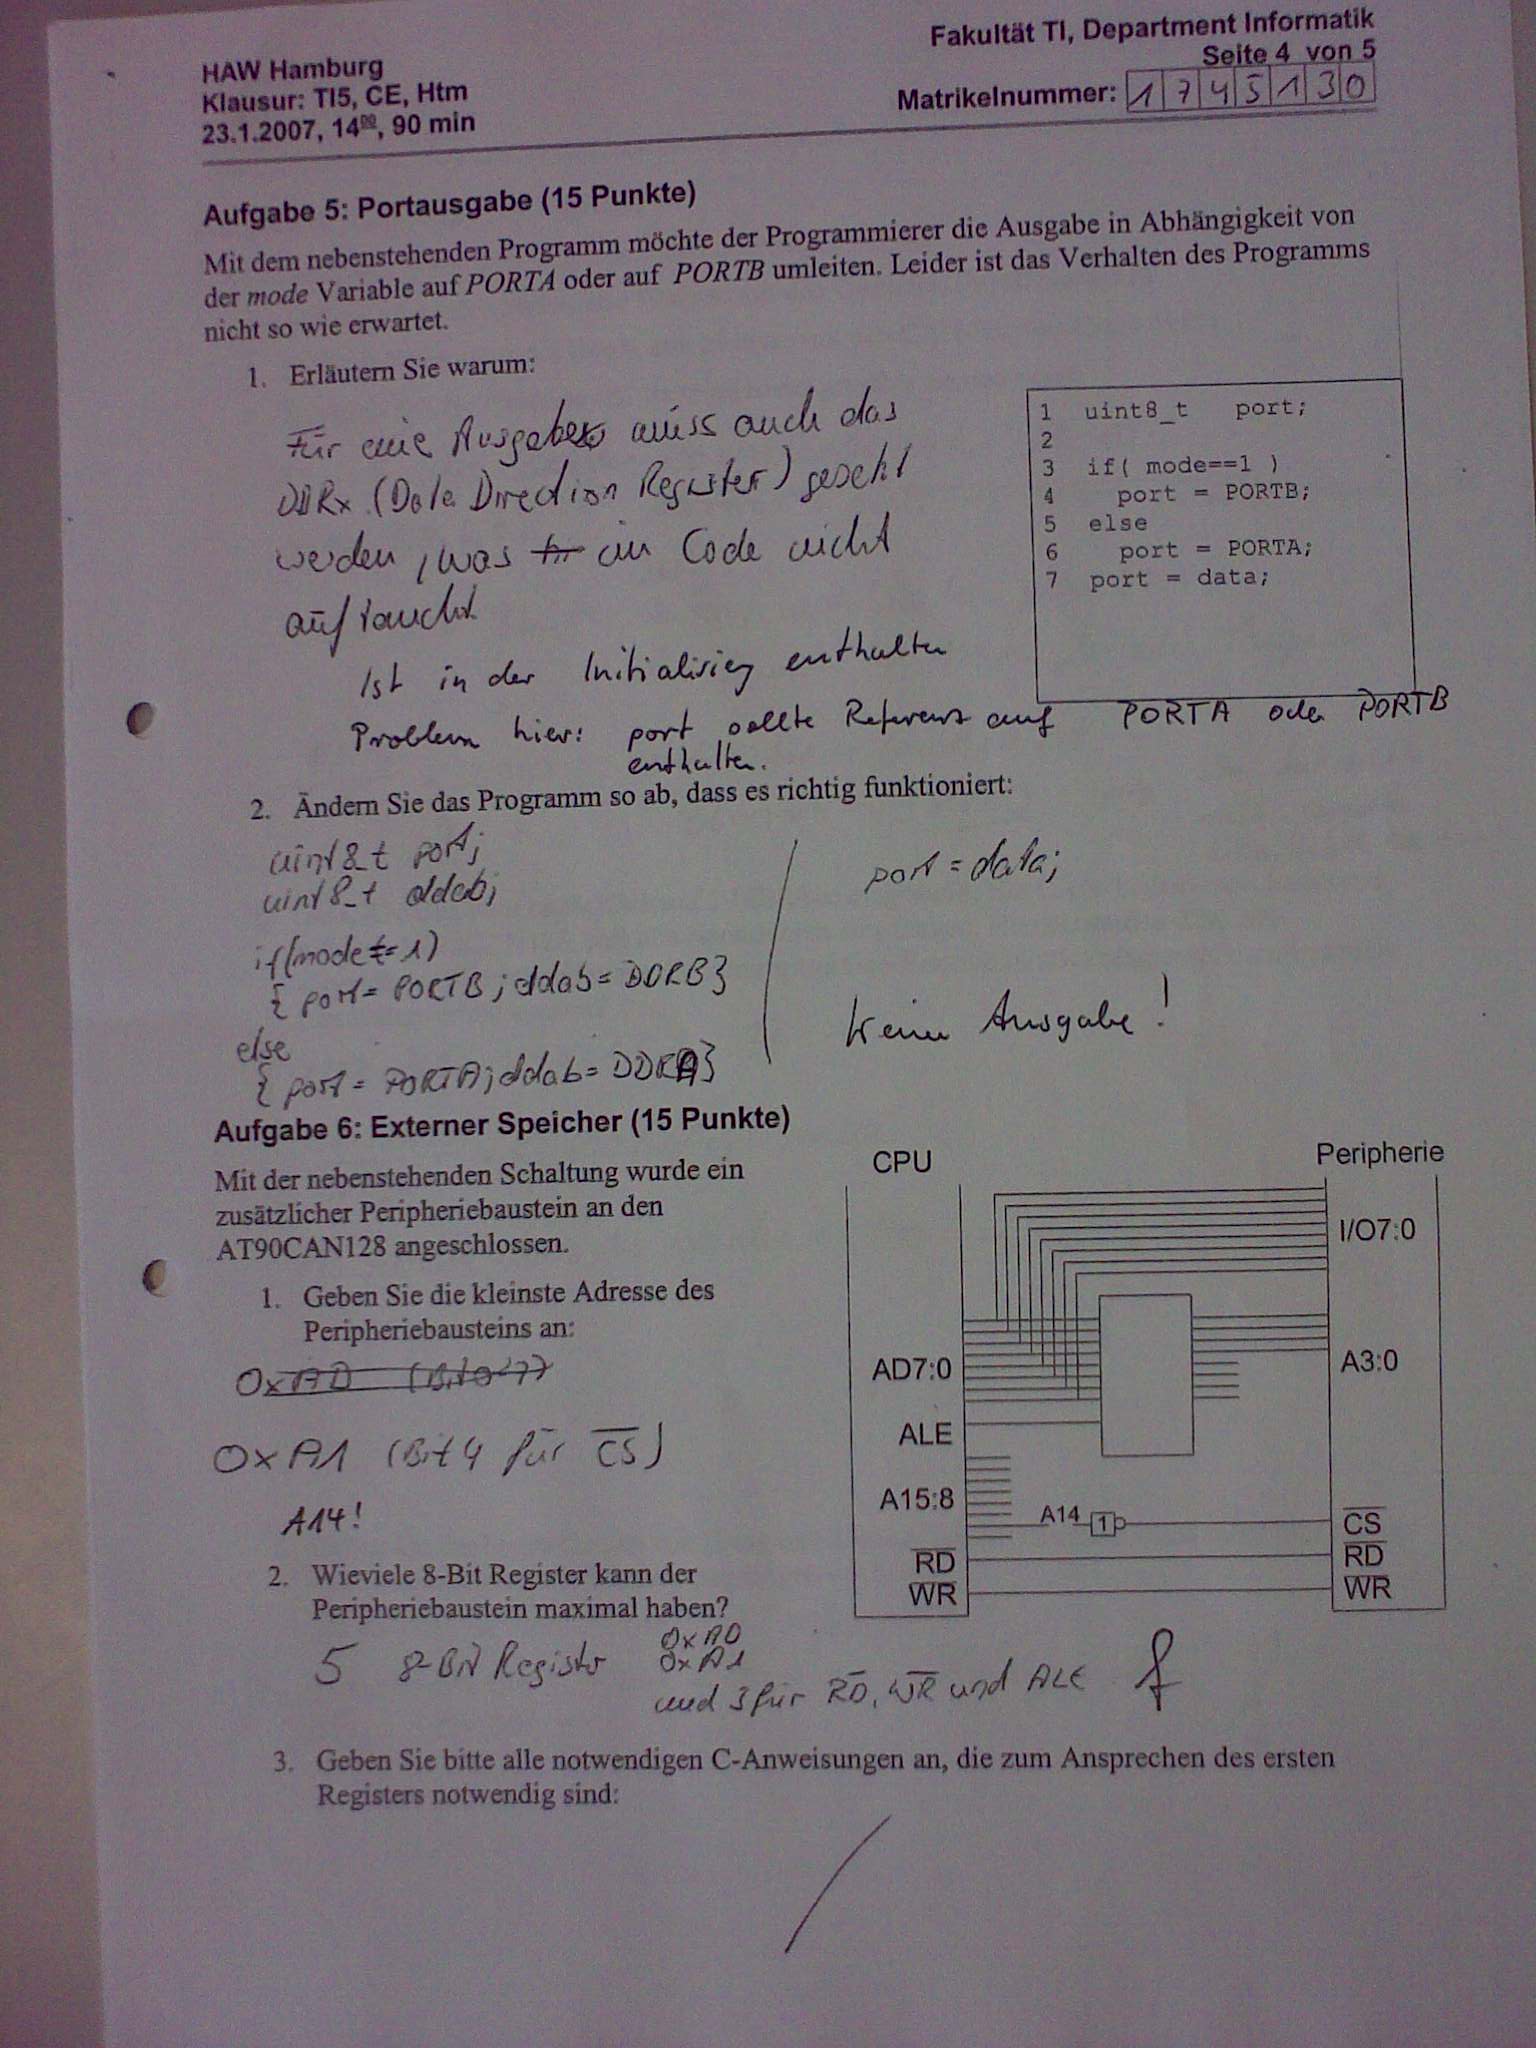 HAW Hamburg
Klausur: TI5, CE, Htm
23.1.2007, 14⁰⁰, 90 min
Fakultät TI, Department Informatik
Seite 4 von 5
Matrikelnummer: 1745130
Aufgabe 5: Portausgabe (15 Punkte)
Mit dem nebenstehenden Programm möchte der Programmierer die Ausgabe in Abhängigkeit von
der mode Variable auf PORTA oder auf PORTB umleiten. Leider ist das Verhalten des Programms
nicht so wie erwartet.
1. Erläutern Sie warum:
Für eine Ausgabe muss auch das
DDRx (Data Direction Register) gesetzt
werden, was im Code nicht
auftaucht
Ist in der Initialisierg enthalten
Problem hier: port sollte Referenz auf PORTA oder PORTB
enthalten.
1 uint8_t port;
2
3 if( mode==1 )
4 port = PORTB;
5 else
6 port = PORTA;
7 port = data;
2. Ändern Sie das Programm so ab, dass es richtig funktioniert:
uint8_t port;
uint8_t ddab;
if(mode == 1)
{ port = PORTB; ddab = DDRB}
else
{ port = PORTA; ddab = DDRA}
port = data;
keine Ausgabe!
Aufgabe 6: Externer Speicher (15 Punkte)
Mit der nebenstehenden Schaltung wurde ein
zusätzlicher Peripheriebaustein an den
AT90CAN128 angeschlossen.
1. Geben Sie die kleinste Adresse des
Peripheriebausteins an:
0xA0 (Bit 0-7)
0xA1 (Bit 4 für CS)
A14!
2. Wieviele 8-Bit Register kann der
Peripheriebaustein maximal haben?
5 8-Bit Register 0xA0
0xA1
und 3 für RD, WR und ALE f
CPU
Peripherie
I/O7:0
AD7:0
A3:0
ALE
A15:8
A14
1
CS
RD
RD
WR
WR
3. Geben Sie bitte alle notwendigen C-Anweisungen an, die zum Ansprechen des ersten
Registers notwendig sind: